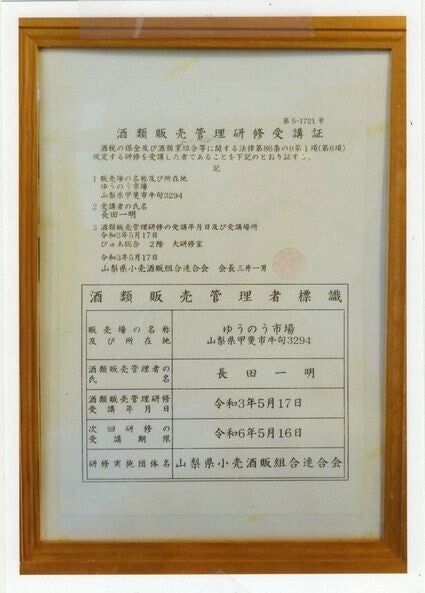 第5-1721号
酒類販売管理研修受講証
酒税の保全及び酒類業組合等に関する法律第86条の9第1項(第6項)
規定する研修を受講した者であることを下記のとおり証する。
記
1 販売場の名称及び所在地
ゆうのう市場
山梨県甲斐市牛句3294
2 受講者の氏名
長田一明
3 酒類販売管理研修の受講年月日及び受講場所
令和3年5月17日
ぴゅあ総合 2階 大研修室
令和3年5月17日
山梨県小売酒販組合連合会 会長三井一男
酒類販売管理者標識
販売場の名称
及び所在地
ゆうのう市場
山梨県甲斐市牛句3294
酒類販売管理者の
氏名
長田一明
酒類販売管理研修
受講年月日
令和3年5月17日
次回研修の
受講期限
令和6年5月16日
研修実施団体名
山梨県小売酒販組合連合会